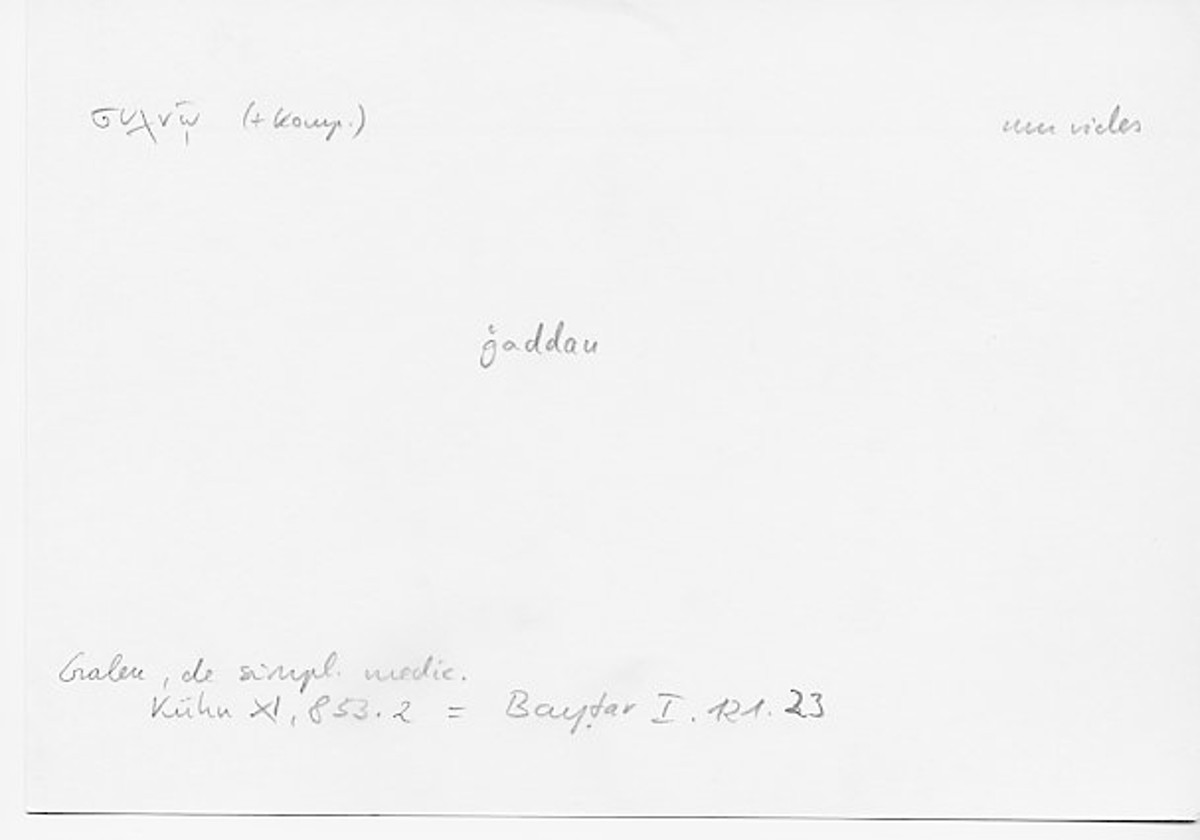 συχνῷ (+ Komp.) um vieles
ǧaddan
Galen, de simpl. medic.
Kühn XI, 853.2 = Bayṭar I. 121. 23